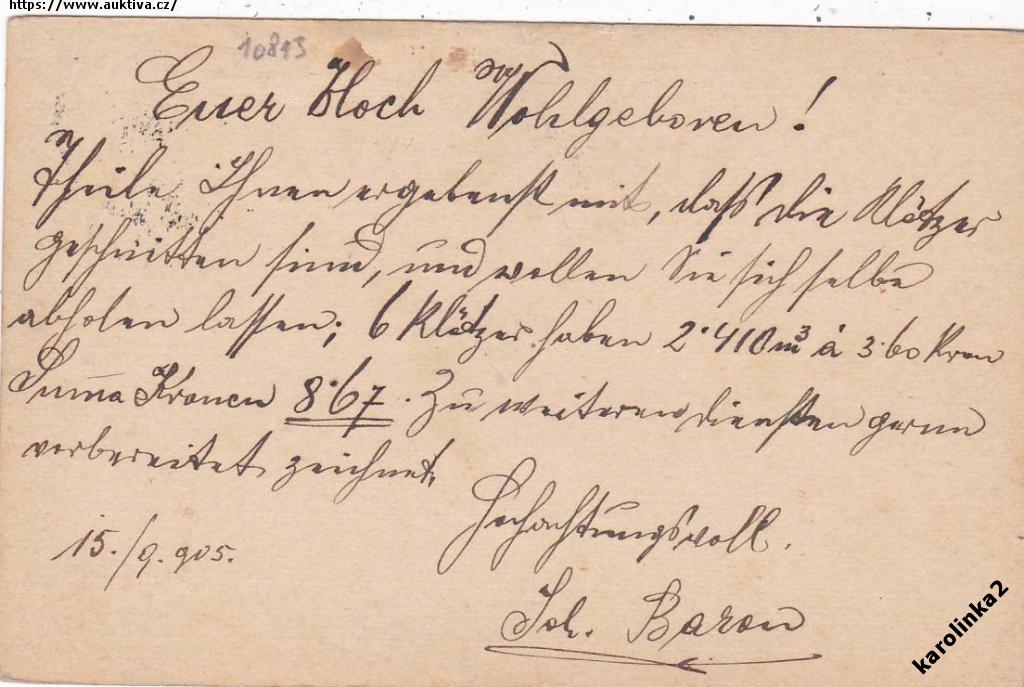 https://www.auktiva.cz/
10813
Euer Hoch Wohlgeboren!
Theile Ihnen ergebenst mit, daß die Klötzer
geschnitten sind, und wollen Sie sich selbe
abholen lassen; 6 Klötzer haben 2·410 m³ á 3·60 Kronen
Suma Kronen 8·67. Zu weiteren diensten gerne
vorbereitet zeichnet,
Hochachtungsvoll.
15./9. 905.
Joh. Baron
karolinka2